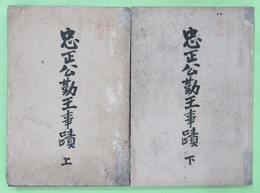 忠正公勤王事蹟 上
忠正公勤王事蹟 下